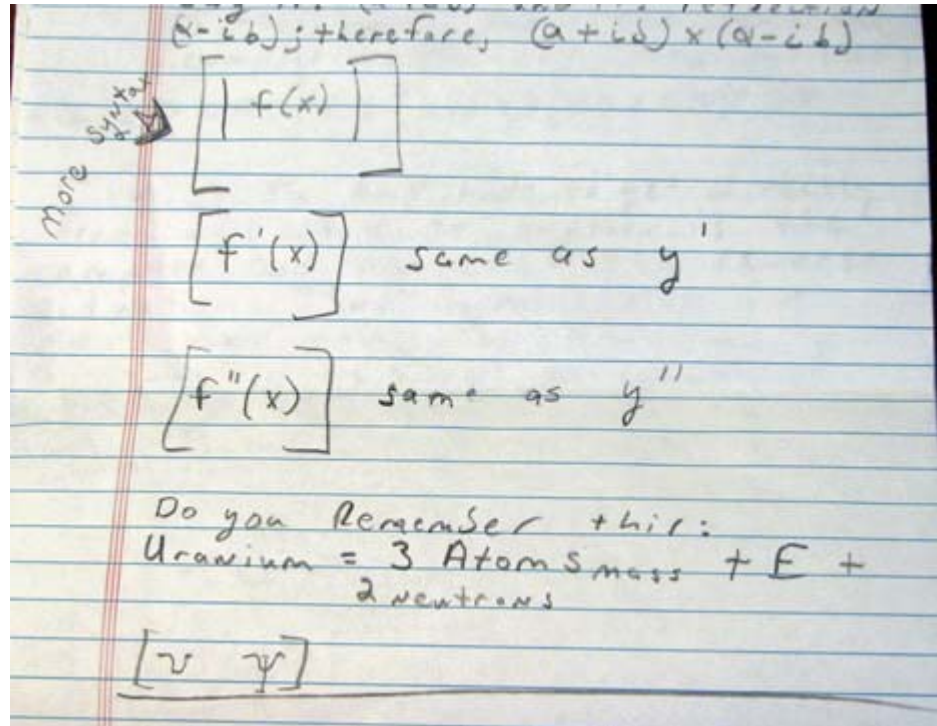 (α-ib); therefore, (a+ib) x (α-ib)
More Syntax
[| f(x) |]
[f'(x)] same as y'
[f"(x)] same as y"
Do you Remember this:
Uranium = 3 Atoms mass + E +
2 neutrons